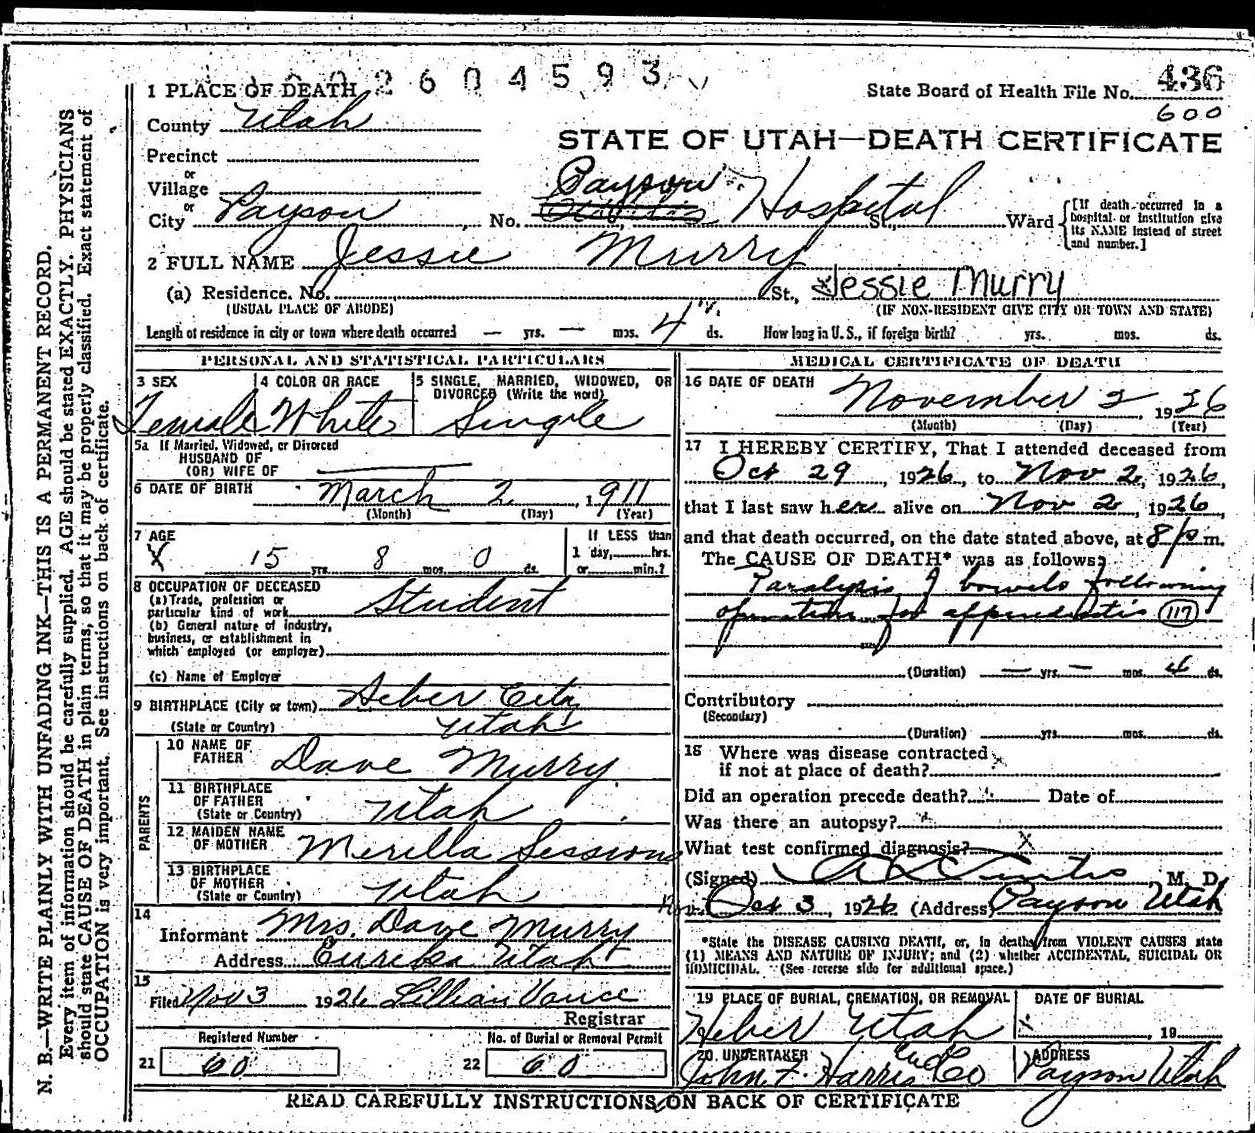 2604593
1 PLACE OF DEATH
State Board of Health File No. 436
County Utah
600
STATE OF UTAH—DEATH CERTIFICATE
Precinct
or
Village
Payson Hospital
or
City Payson No. St., Ward
[If death occurred in a hospital or institution give its NAME instead of street and number.]
2 FULL NAME Jessie Murry
(a) Residence. No. St., Jessie Murry
(USUAL PLACE OF ABODE) (IF NON-RESIDENT GIVE CITY OR TOWN AND STATE)
Length of residence in city or town where death occurred — yrs. — mos. 4 ds. How long in U.S., if foreign birth? yrs. mos. ds.
PERSONAL AND STATISTICAL PARTICULARS
3 SEX 4 COLOR OR RACE 5 SINGLE, MARRIED, WIDOWED, OR
DIVORCED (Write the word)
Female White Single
5a If Married, Widowed, or Divorced
HUSBAND OF
(OR) WIFE OF
6 DATE OF BIRTH March 2, 1911
(Month) (Day) (Year)
7 AGE If LESS than
15 yrs. 8 mos. 0 ds. 1 day, hrs.
or min.?
8 OCCUPATION OF DECEASED
(a) Trade, profession or
particular kind of work Student
(b) General nature of industry,
business, or establishment in
which employed (or employer)
(c) Name of Employer
9 BIRTHPLACE (City or town) Heber City
(State or Country) Utah
PARENTS
10 NAME OF
FATHER Dave Murry
11 BIRTHPLACE
OF FATHER
(State or Country) Utah
12 MAIDEN NAME
OF MOTHER Merilla Sessions
13 BIRTHPLACE
OF MOTHER
(State or Country) Utah
14
Informant Mrs. Dave Murry
Address Eureka Utah
15
Filed Nov 3 1926 Lillian Vance
Registrar
Registered Number No. of Burial or Removal Permit
21 60 22 60
MEDICAL CERTIFICATE OF DEATH
16 DATE OF DEATH
November 2, 1926
(Month) (Day) (Year)
17 I HEREBY CERTIFY, That I attended deceased from
Oct 29, 1926, to Nov 2, 1926,
that I last saw her alive on Nov 2, 1926,
and that death occurred, on the date stated above, at 8 p m.
The CAUSE OF DEATH* was as follows:
Paralysis of bowels following
operation for appendicitis 117
(Duration) — yrs. — mos. 4 ds.
Contributory
(Secondary)
(Duration) yrs. mos. ds.
18 Where was disease contracted
if not at place of death?
Did an operation precede death? Date of
Was there an autopsy?
What test confirmed diagnosis? X
(Signed) M. D.
Nov. Oct 3, 1926 (Address) Payson Utah
*State the DISEASE CAUSING DEATH, or, in deaths from VIOLENT CAUSES state
(1) MEANS AND NATURE OF INJURY; and (2) whether ACCIDENTAL, SUICIDAL OR
HOMICIDAL. (See reverse side for additional space.)
19 PLACE OF BURIAL, CREMATION, OR REMOVAL DATE OF BURIAL
Heber Utah 19
20. UNDERTAKER ADDRESS
John F. Harris Und Co Payson Utah
READ CAREFULLY INSTRUCTIONS ON BACK OF CERTIFICATE
N. B.—WRITE PLAINLY WITH UNFADING INK—THIS IS A PERMANENT RECORD.
Every item of information should be carefully supplied. AGE should be stated EXACTLY. PHYSICIANS
should state CAUSE OF DEATH in plain terms, so that it may be properly classified. Exact statement of
OCCUPATION is very important. See instructions on back of certificate.